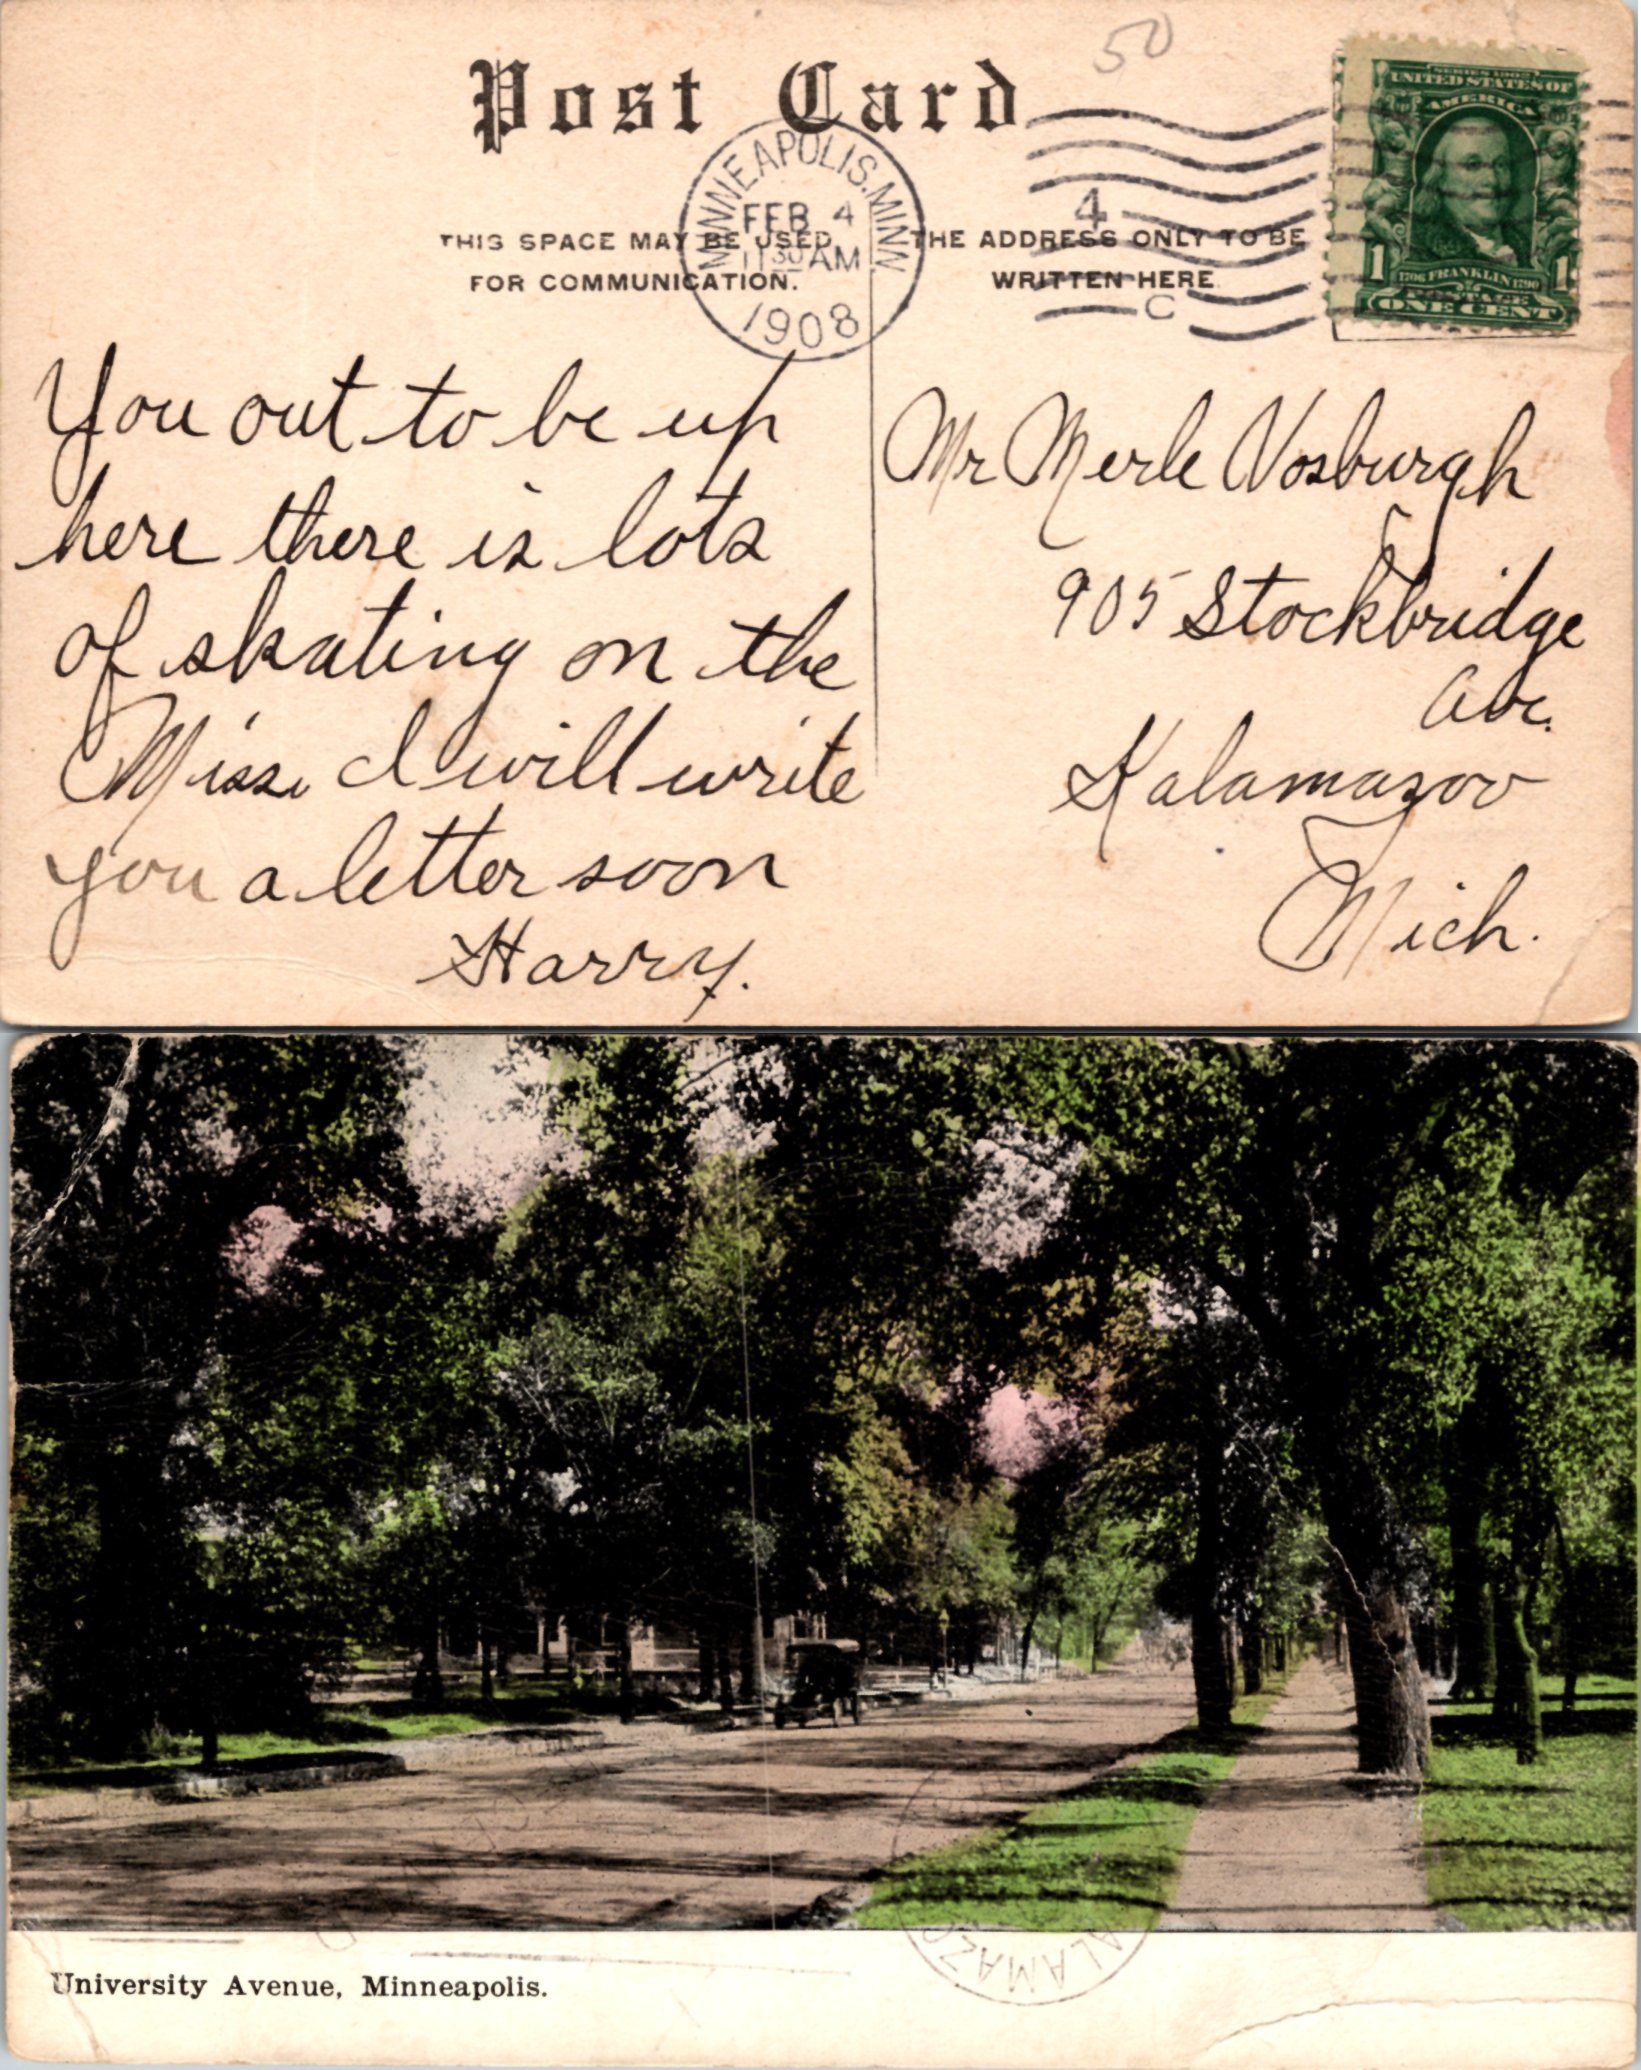 50
Post Card
MINNEAPOLIS. MINN.
FEB 4
11 30 AM
1908
4
C
SERIES 1902
UNITED STATES OF
AMERICA
1706 FRANKLIN 1790
POSTAGE
1 ONE CENT 1
THIS SPACE MAY BE USED
FOR COMMUNICATION.
THE ADDRESS ONLY TO BE
WRITTEN HERE
You out to be up
here there is lots
of skating on the
Miss. I will write
you a letter soon
Harry.
Mr Merle Vosburgh
905 Stockbridge
Ave.
Kalamazoo
Mich.
University Avenue, Minneapolis.